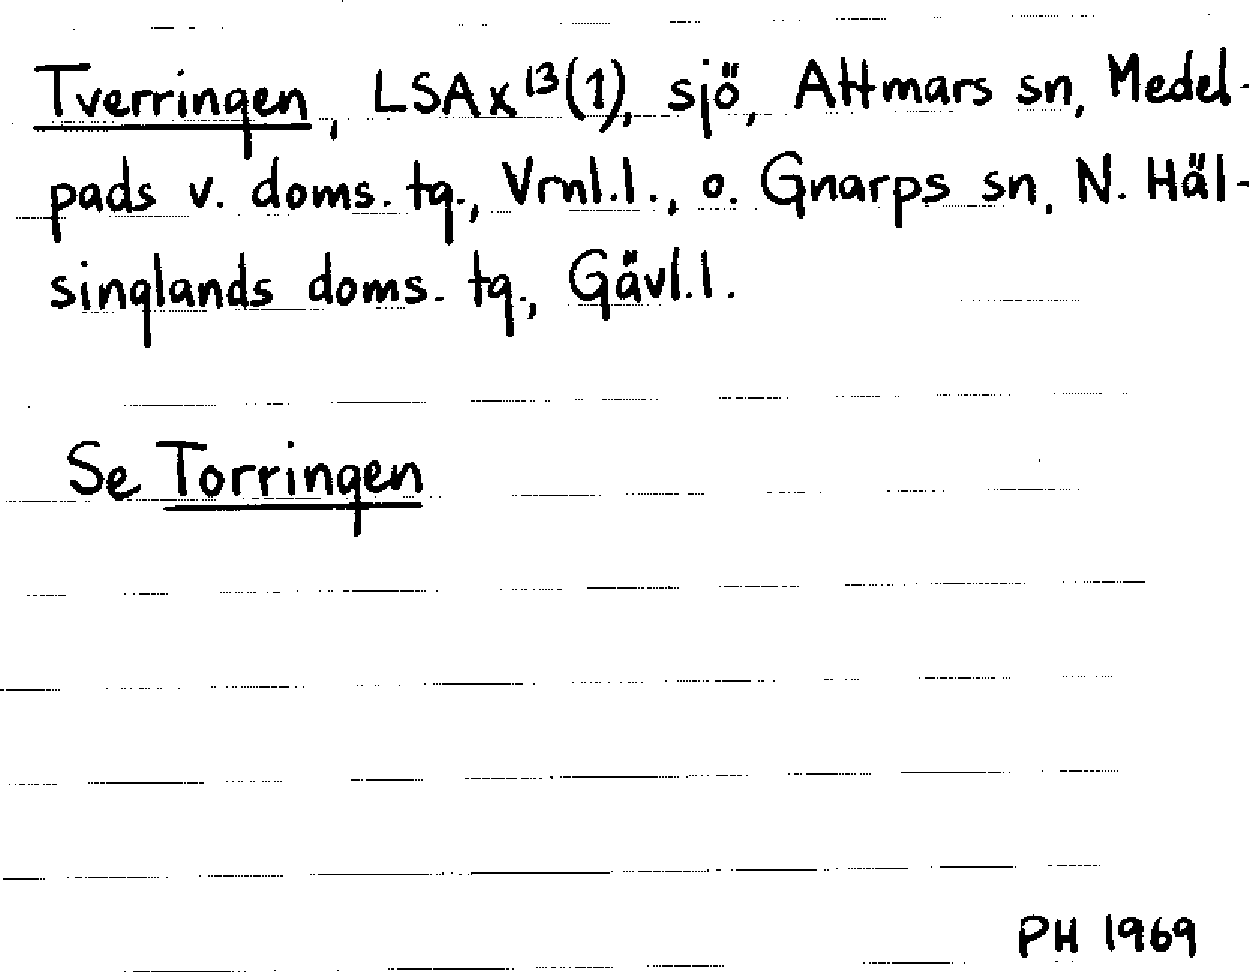 Tverringen, LSA x 13(1), sjö, Attmars sn, Medel-
pads v. doms. tg., Vrnl.l., o. Gnarps sn, N. Häl-
singlands doms. tg., Gävl.l.
Se Torringen
PH 1969